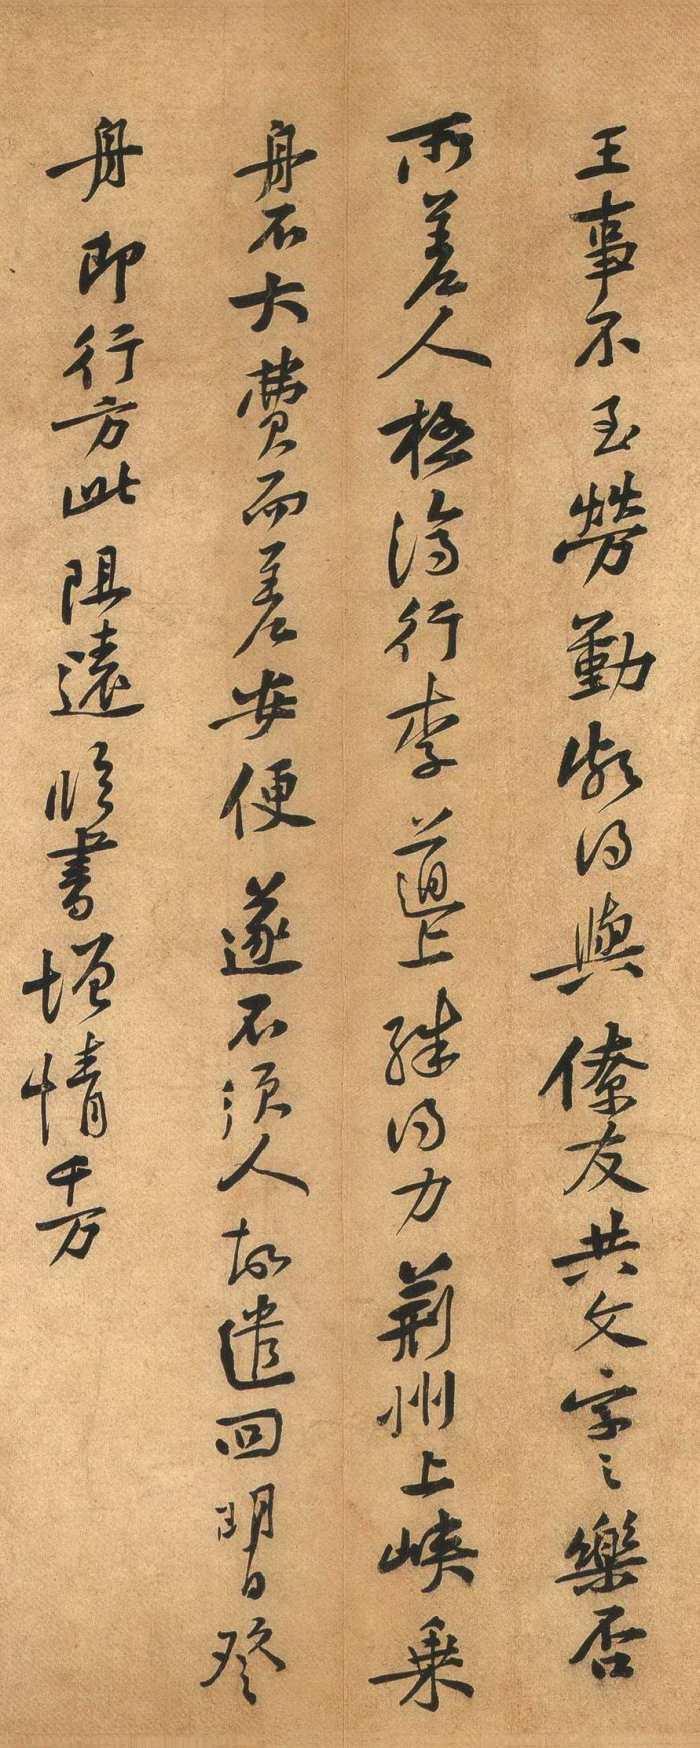 王事不至勞勤頗得與僚友共文字之樂否
所差人極濟行李道上殊得力荊州上峽乗
舟不大費而差安便遂不須人故遣回明日登
舟即行方此阻遠臨書增情千万